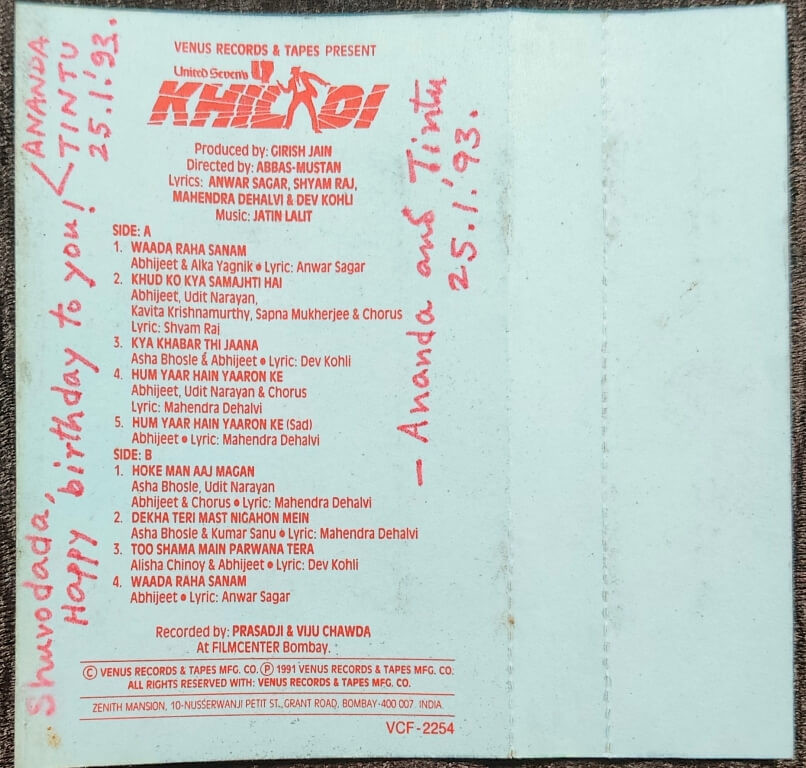 VENUS RECORDS & TAPES PRESENT
United Seven's
KHILADI
Produced by: GIRISH JAIN
Directed by: ABBAS-MUSTAN
Lyrics: ANWAR SAGAR, SHYAM RAJ,
MAHENDRA DEHALVI & DEV KOHLI
Music: JATIN LALIT
SIDE: A
1. WAADA RAHA SANAM
Abhijeet & Alka Yagnik • Lyric: Anwar Sagar
2. KHUD KO KYA SAMAJHTI HAI
Abhijeet, Udit Narayan,
Kavita Krishnamurthy, Sapna Mukherjee & Chorus
Lyric: Shyam Raj
3. KYA KHABAR THI JAANA
Asha Bhosle & Abhijeet • Lyric: Dev Kohli
4. HUM YAAR HAIN YAARON KE
Abhijeet, Udit Narayan & Chorus
Lyric: Mahendra Dehalvi
5. HUM YAAR HAIN YAARON KE (Sad)
Abhijeet • Lyric: Mahendra Dehalvi
SIDE: B
1. HOKE MAN AAJ MAGAN
Asha Bhosle, Udit Narayan
Abhijeet & Chorus • Lyric: Mahendra Dehalvi
2. DEKHA TERI MAST NIGAHON MEIN
Asha Bhosle & Kumar Sanu • Lyric: Mahendra Dehalvi
3. TOO SHAMA MAIN PARWANA TERA
Alisha Chinoy & Abhijeet • Lyric: Dev Kohli
4. WAADA RAHA SANAM
Abhijeet • Lyric: Anwar Sagar
Recorded by: PRASADJI & VIJU CHAWDA
At FILMCENTER Bombay.
© VENUS RECORDS & TAPES MFG. CO. Ⓟ 1991 VENUS RECORDS & TAPES MFG. CO.
ALL RIGHTS RESERVED WITH: VENUS RECORDS & TAPES MFG. CO.
ZENITH MANSION, 10-NUSSERWANJI PETIT ST., GRANT ROAD, BOMBAY-400 007. INDIA.
VCF-2254
Shuvodada,
Happy birthday to you!
ANANDA
TINTU
25.1.'93.
— Ananda and Tintu
25.1.'93.